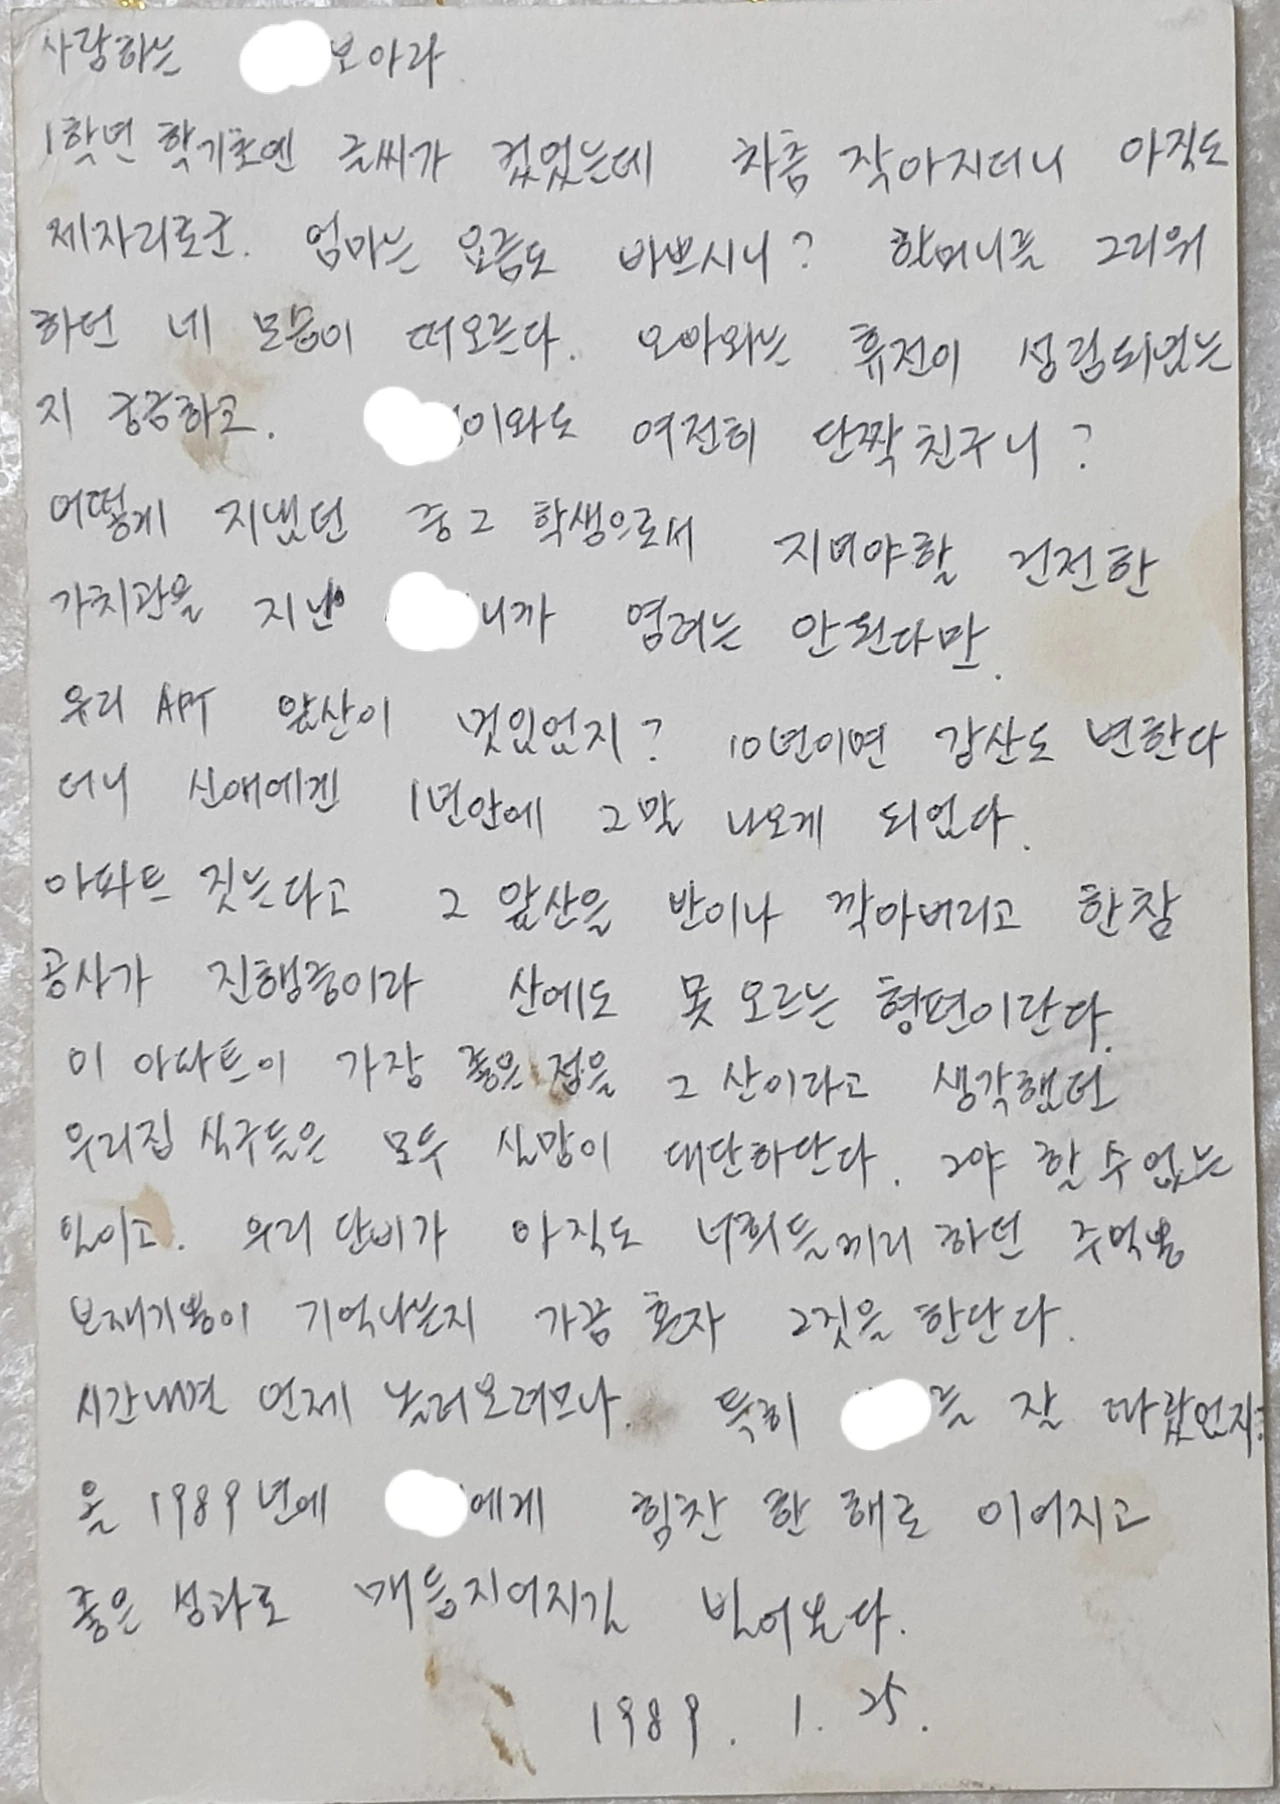 사랑하는 보아라
1학년 학기초엔 글씨가 컸었는데 차츰 작아지더니 아직도
제자리로군. 엄마는 요즘도 바쁘시니? 할머니를 그리워
하던 네 모습이 떠오른다. 오빠와는 휴전이 성립되었는
지 궁금하고. 이와도 여전히 단짝친구니?
어떻게 지냈던 중2 학생으로서 지녀야할 건전한
가치관을 지닌 니까 염려는 안된다만.
우리 APT 앞산이 멋있었지? 10년이면 강산도 변한다
더니 신애에겐 1년안에 그말 나오게 되었다.
아파트 짓는다고 그 앞산을 반이나 깍아버리고 한참
공사가 진행중이라 산에도 못 오르는 형편이란다.
이 아파트이 가장 좋은 점을 그 산이라고 생각했던
우리집 식구들은 모두 실망이 대단하단다. 그야 할 수 없는
일이고. 우리 단비가 아직도 너희들끼리 하던
기억나는지 가끔 혼자 그짓을 한단다.
시간내면 언제 놀러오려므나. 특히 를 잘 따랐었지?
올 1989년에 에게 힘찬 한 해로 이어지고
좋은 성과로 매듭지어지길 빌어본다.
1989. 1. 25.